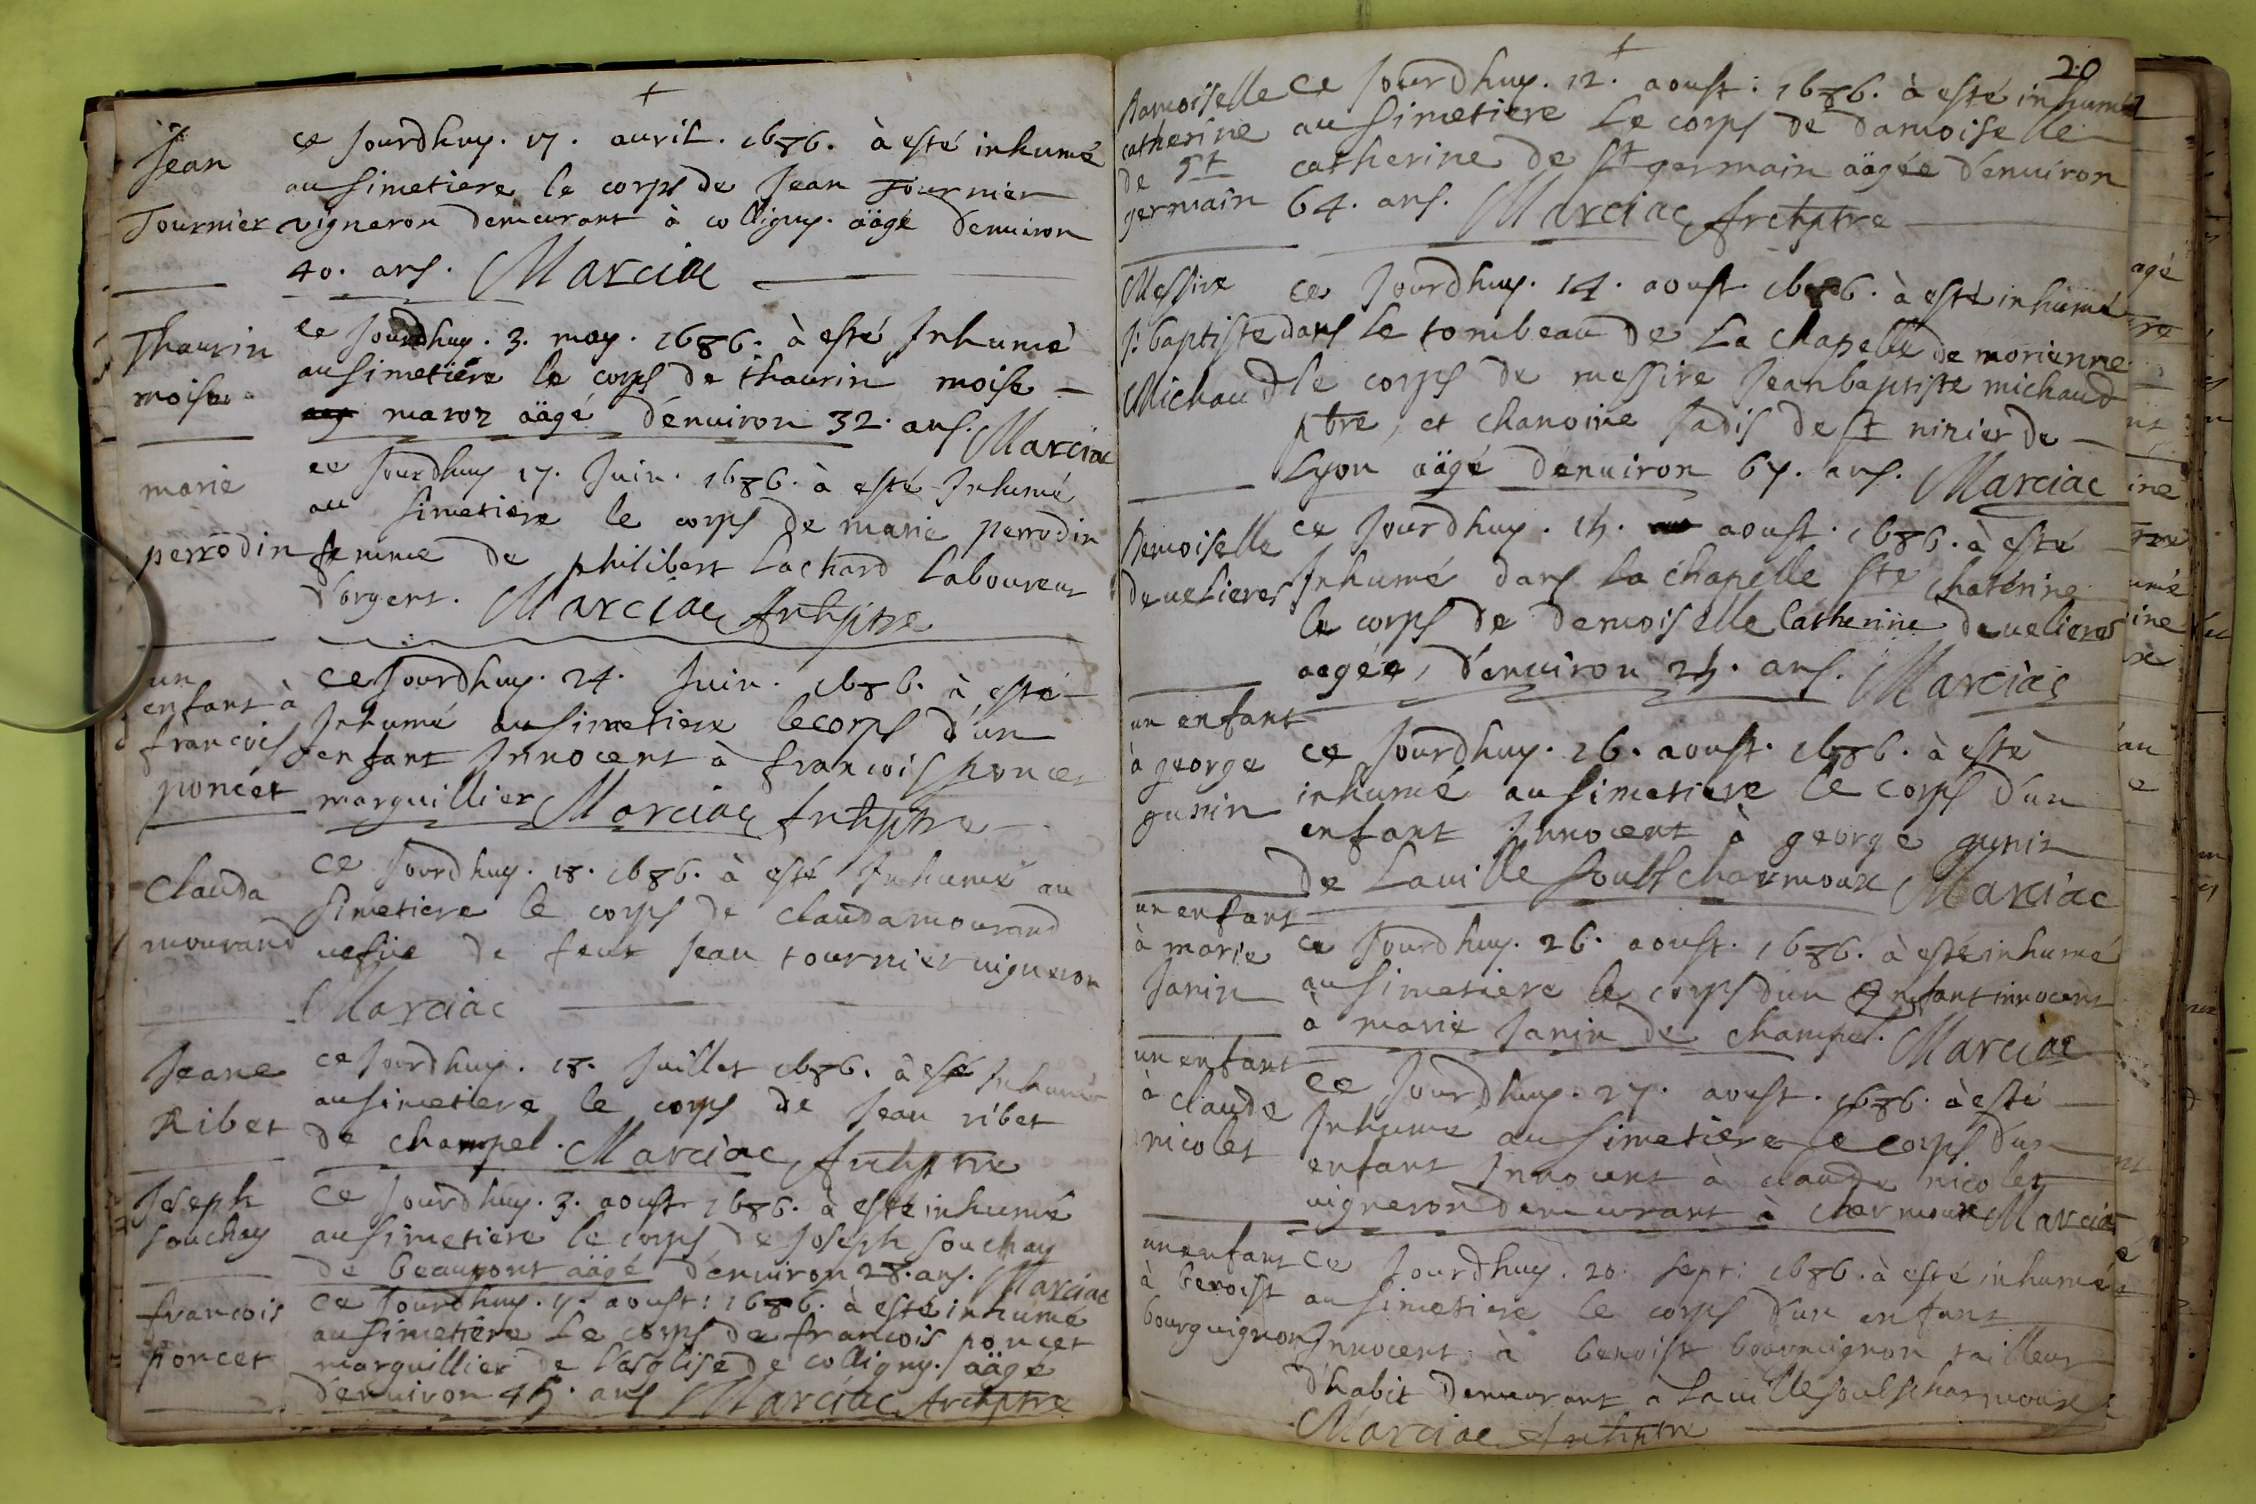 +
Jean
Tournier
ce Jourdhuy. 17. auril. 1686. à esté inhumé
au simetiere le corps de Jean Tournier
vigneron demeurant à colligny. äägé denuiron
40. ans. Marciac
Thaurin
moise
ce Jourdhuy. 3. may. 1686. à esté Inhumé
au simetiére le corps de thaurin moise
maroz äägé dénuiron 32. ans. Marciac
marie
perrodin
ce Jourdhuy 17. Juin. 1686. à esté Inhumé
au simetiere le corps de marie perrodin
femme de philibert Lachard Laboureur
d'orgent. Marciac Archptre
un
enfant à
francois
poncet
ce Jourdhuy. 24. Juin. 1686. à esté
Inhumé au simetiere le corps d'un
enfant Innocent à francois poncet
marguillier Marciac Archptre
Clauda
mourand
ce Jourdhuy. 18. 1686. à esté Inhumé au
simetiere le corps de clauda mourand
uefue de feut Jean tournier uigneron
Marciac
Jeane
Ribet
ce Jourdhuy. 18. Juillet 1686. à esté Inhumé
au simetiere le corps de Jean ribet
de champel. Marciac Archptre
Joseph
souchay
ce Jourdhuy. 3. aoust 1686. à esté inhumé
au simetiere le corps de Joseph souchay
de beaupont äägé dénuiron 28. ans. Marciac
francois
poncet
ce Jourdhuy. 7. aoust: 1686. à esté inhumé
au simetiére Le corps de francois poncet
marguillier de l'esglise de colligny. äägé
denuiron 45. ans Marciac Archptre
+
20
Damoiselle
catherine
de St
germain
ce Jourdhuy. 12. aoust: 1686. à esté inhumé
au simetiere Le corps de damoiselle
catherine de St germain äägée d'enuiron
64. ans. Marciac Archptre
Messire
J: baptiste
Michaud
ce Jourdhuy. 14. aoust. 1686. à esté inhumé
dans Le tombeau de La chapelle de morienne
le corps de messire Jean baptiste michaud
ptre, et chanoine Jadis de st nizier de
Lyon äägé dénuiron 67. ans. Marciac
Demoiselle
deuelieres
ce Jourdhuy. 15. aoust. 1686. à esté
Inhumé dans La chapelle ste chatérine
le corps de demoiselle Catherine deuelieres
aagée, d'enuiron 25. ans. Marciac
un enfant
à george
gunin
ce Jourdhuy. 26. aoust. 1686. à esté
inhumé au simetiere le corps d'un
enfant Innocent à george gunin
de Lauille soubs charmoux Marciac
un enfant
à marie
Janin
ce Jourdhuy. 26. aoust. 1686. à esté inhumé
au simetiere le corps d'un Enfant innocent
à marie Janin de champel. Marciac
un enfant
à claude
nicolet
ce Jourdhuy. 27. aoust. 1686. à esté
Inhumé au simetiere le corps d'un
enfant Innocent à claude nicolet
uigneron demeurant à charmoux Marciac
un enfant
à benoist
bourguignon
ce Jourdhuy. 20. sept: 1686. à esté inhumé
au simetiere le corps d'un enfant
Innocent à benoist bourguignon tailleur
d'habit demeurant a Lauille souls charmoux
Marciac Archptre